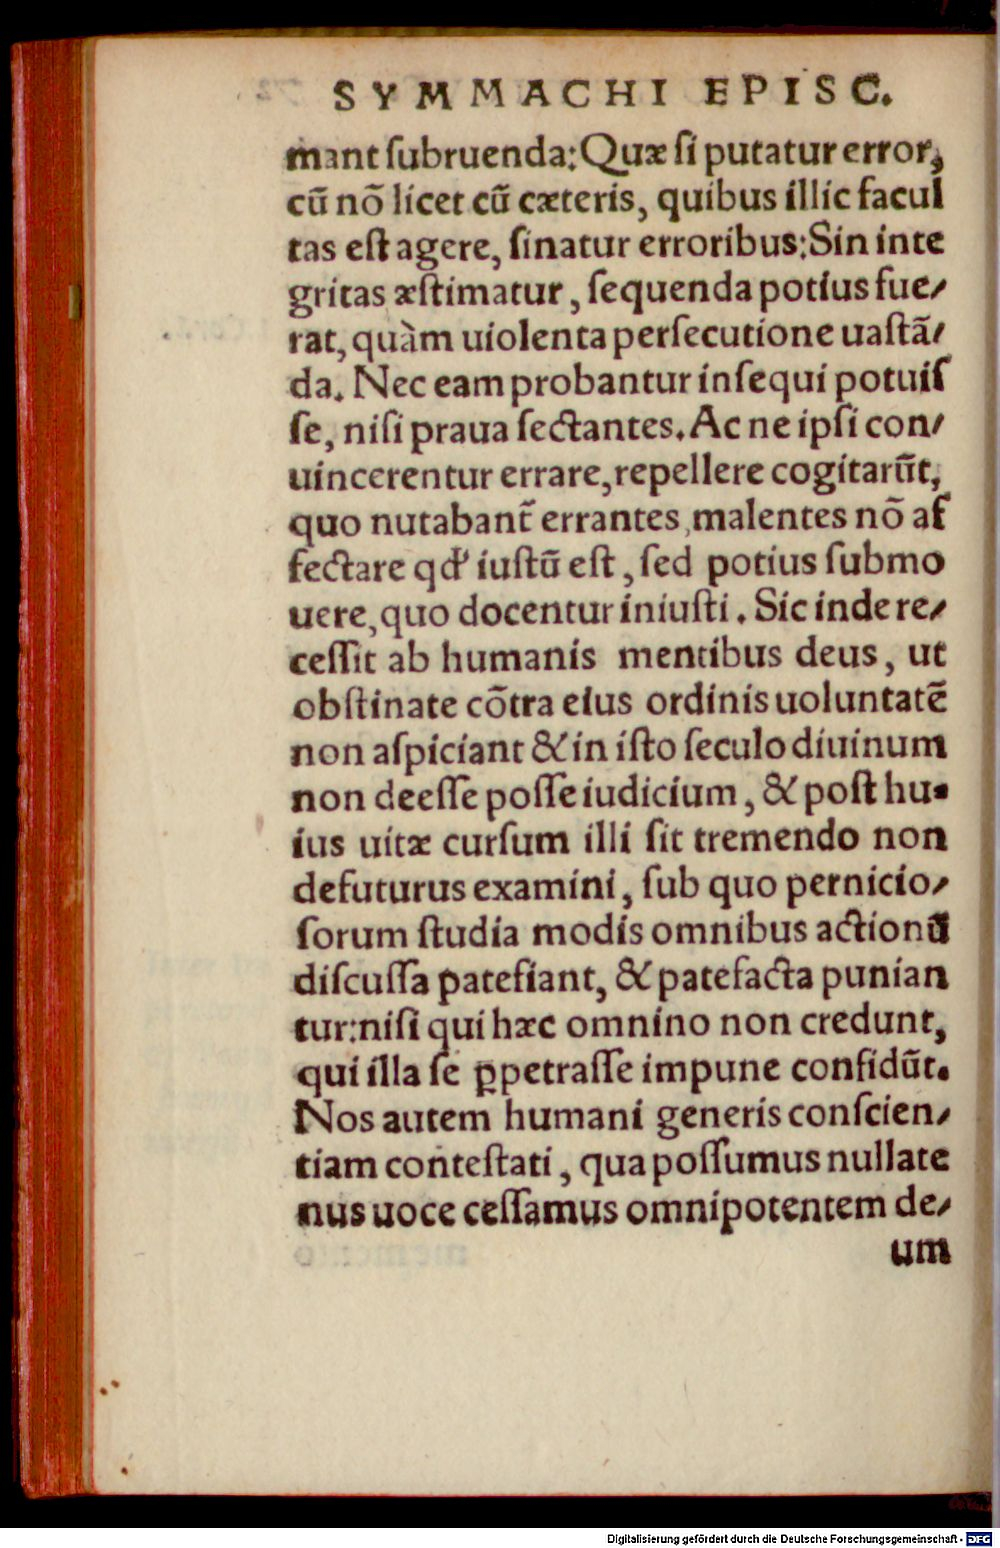 SYMMACHI EPISC.
mant ſubruenda: Quæ ſi putatur error,
cũ nõ licet cũ cæteris, quibus illic facul
tas eſt agere, ſinatur erroribus: Sin inte
gritas æſtimatur, ſequenda potius fue/
rat, quàm uiolenta perſecutione uaſtã/
da. Nec eam probantur inſequi potuiſ
ſe, niſi praua ſectantes. Ac ne ipſi con/
uincerentur errare, repellere cogitarũt,
quo nutabant̃ errantes, malentes nõ af
fectare qď iuſtũ eſt, ſed potius ſubmo
uere, quo docentur iniuſti. Sic inde re/
ceſſit ab humanis mentibus deus, ut
obſtinate cõtra eius ordinis uoluntatẽ
non aſpiciant & in iſto ſeculo diuinum
non deeſſe poſſe iudicium, & poſt hu-
ius uitæ curſum illi ſit tremendo non
defuturus examini, ſub quo pernicio/
ſorum ſtudia modis omnibus actionũ
diſcuſſa patefiant, & patefacta punian
tur: niſi qui hæc omnino non credunt,
qui illa ſe ꝑpetraſſe impune confidũt.
Nos autem humani generis conſcien/
tiam conteſtati, qua poſſumus nullate
nus uoce ceſſamus omnipotentem de/
um
Digitalisierung gefördert durch die Deutsche Forschungsgemeinschaft - DFG